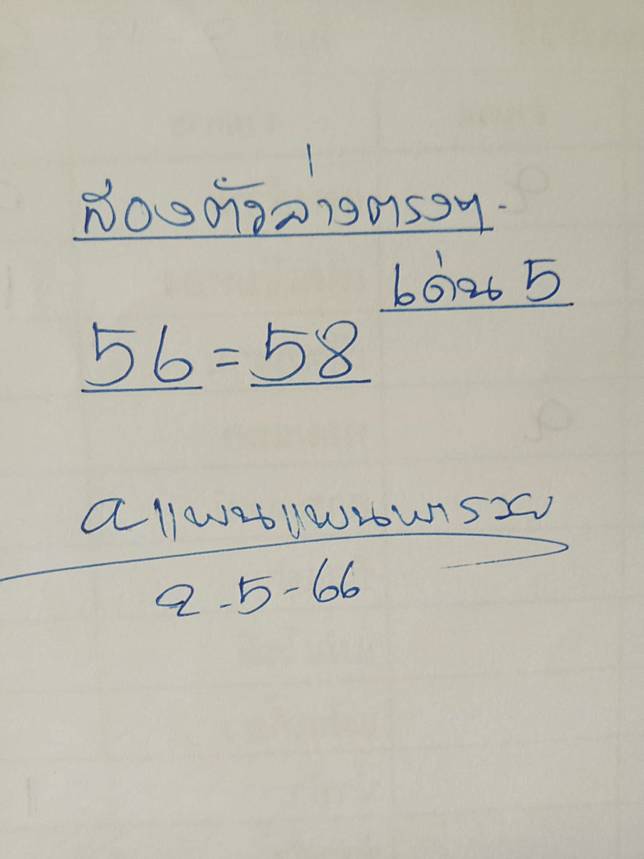 สองตัวล่างตรงๆ.
เด่น 5
56 = 58
a แพนแพนพารวย
2-5-66